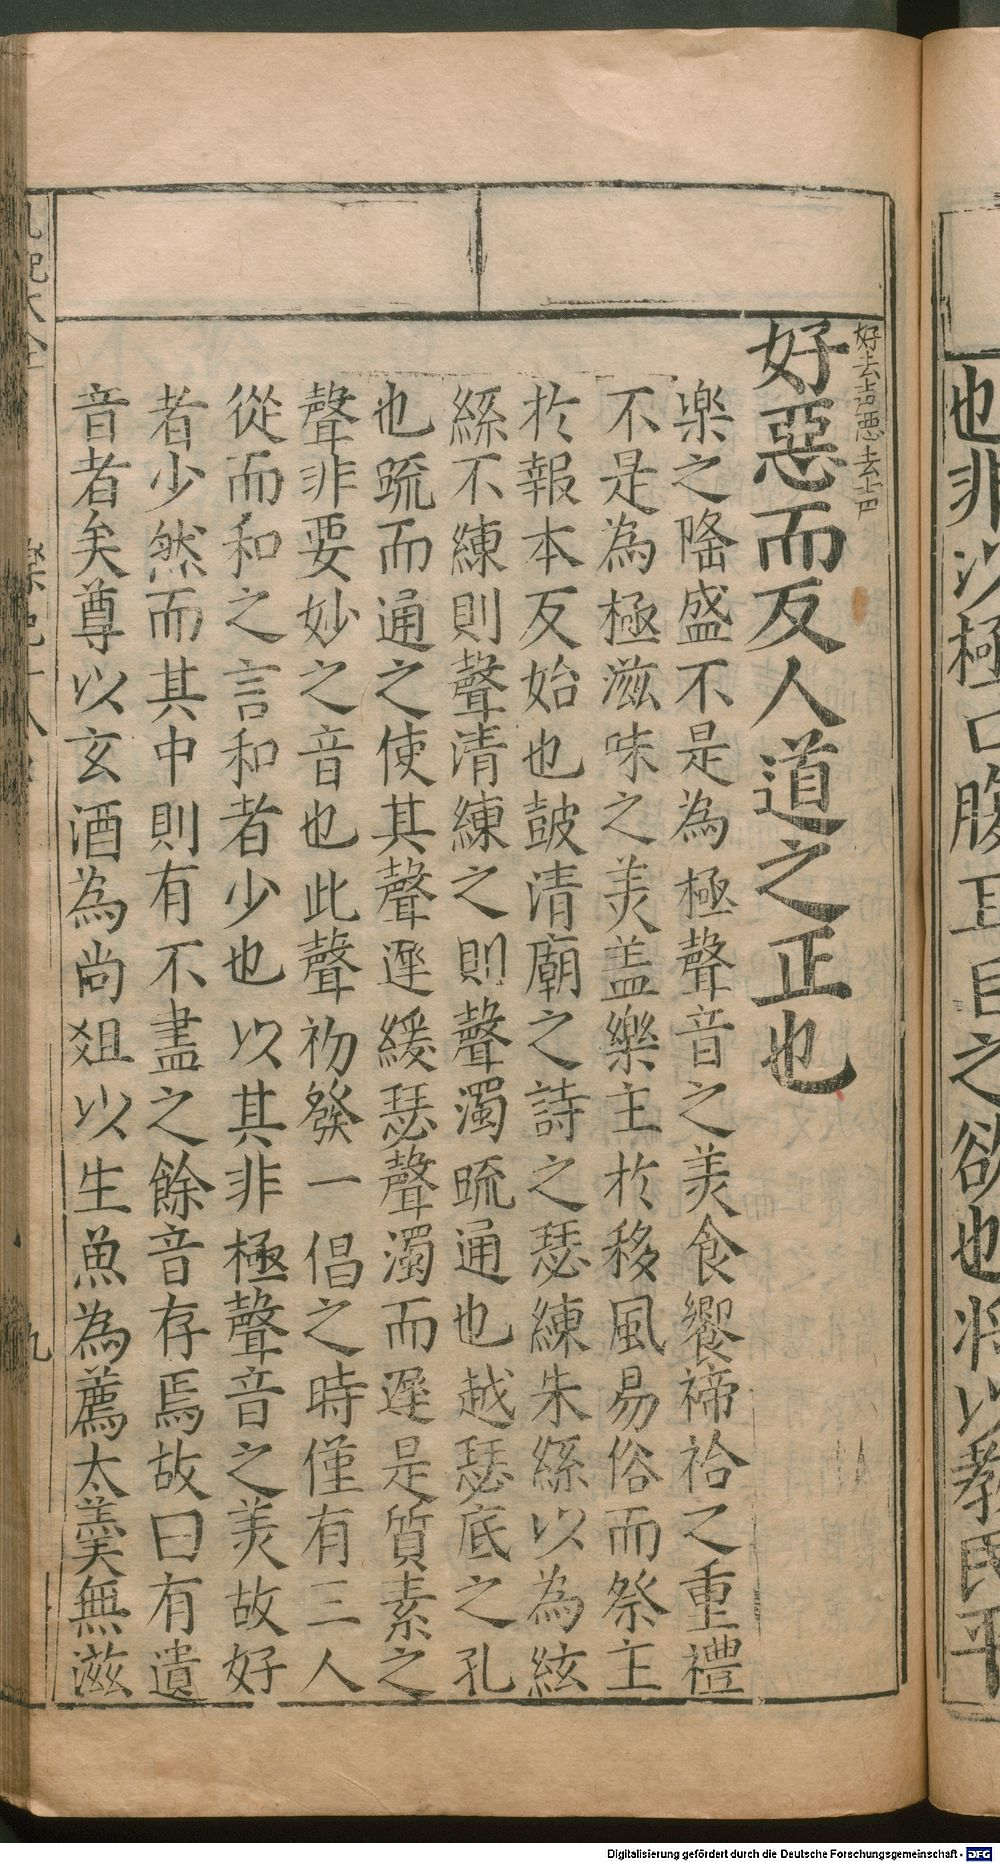 也非以極口腹耳目之欲也將以教民平
好去聲惡去聲
好惡而反人道之正也
樂之隆盛不是為極聲音之美食饗禘祫之重禮
不是為極滋味之美盖樂主於移風易俗而祭主
於報本反始也鼓清廟之詩之瑟練朱絲以為絃
絲不練則聲清練之則聲濁䟽通也越瑟底之孔
也䟽而通之使其聲遲緩瑟聲濁而遲是質素之
聲非要妙之音也此聲初發一倡之時僅有三人
從而和之言和者少也以其非極聲音之美故好
者少然而其中則有不盡之餘音存焉故曰有遺
音者矣尊以玄酒為尚俎以生魚為薦太羹無滋
樂記十八
九
Digitalisierung gefördert durch die Deutsche Forschungsgemeinschaft - DFG